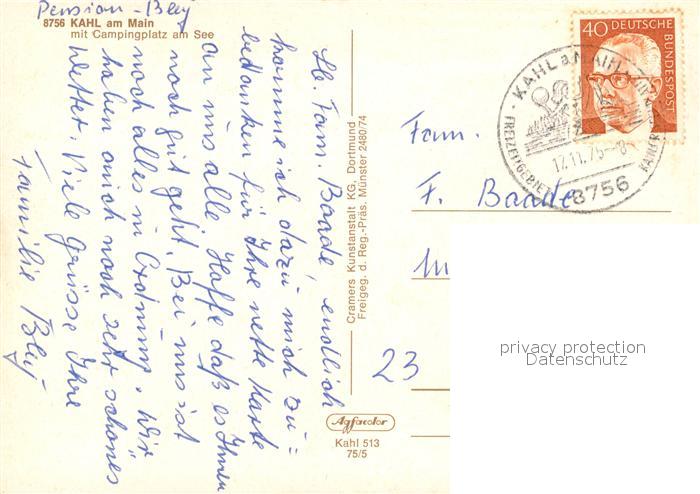 Pension - Bley
8756 KAHL am Main
mit Campingplatz am See
Lb. Fam. Baade, endlich
komme ich dazu mich zu =
bedanken für Ihre nette Karte
an uns alle. Hoffe daß es Ihnen
noch gut geht. Bei uns ist
noch alles in Ordnung. Wir
haben auch noch sehr schönes
Wetter. Viele Grüsse Ihre
Familie Bley
Cramers Kunstanstalt KG, Dortmund
Freigeg. d. Reg.-Präs. Münster 2480/74
Agfacolor
Kahl 513
75/5
40 DEUTSCHE
BUNDESPOST
KAHL a. MAIN
FREIZEITGEBIET
17.11.75-8
8756
Fam.
F. Baade
23
privacy protection
Datenschutz